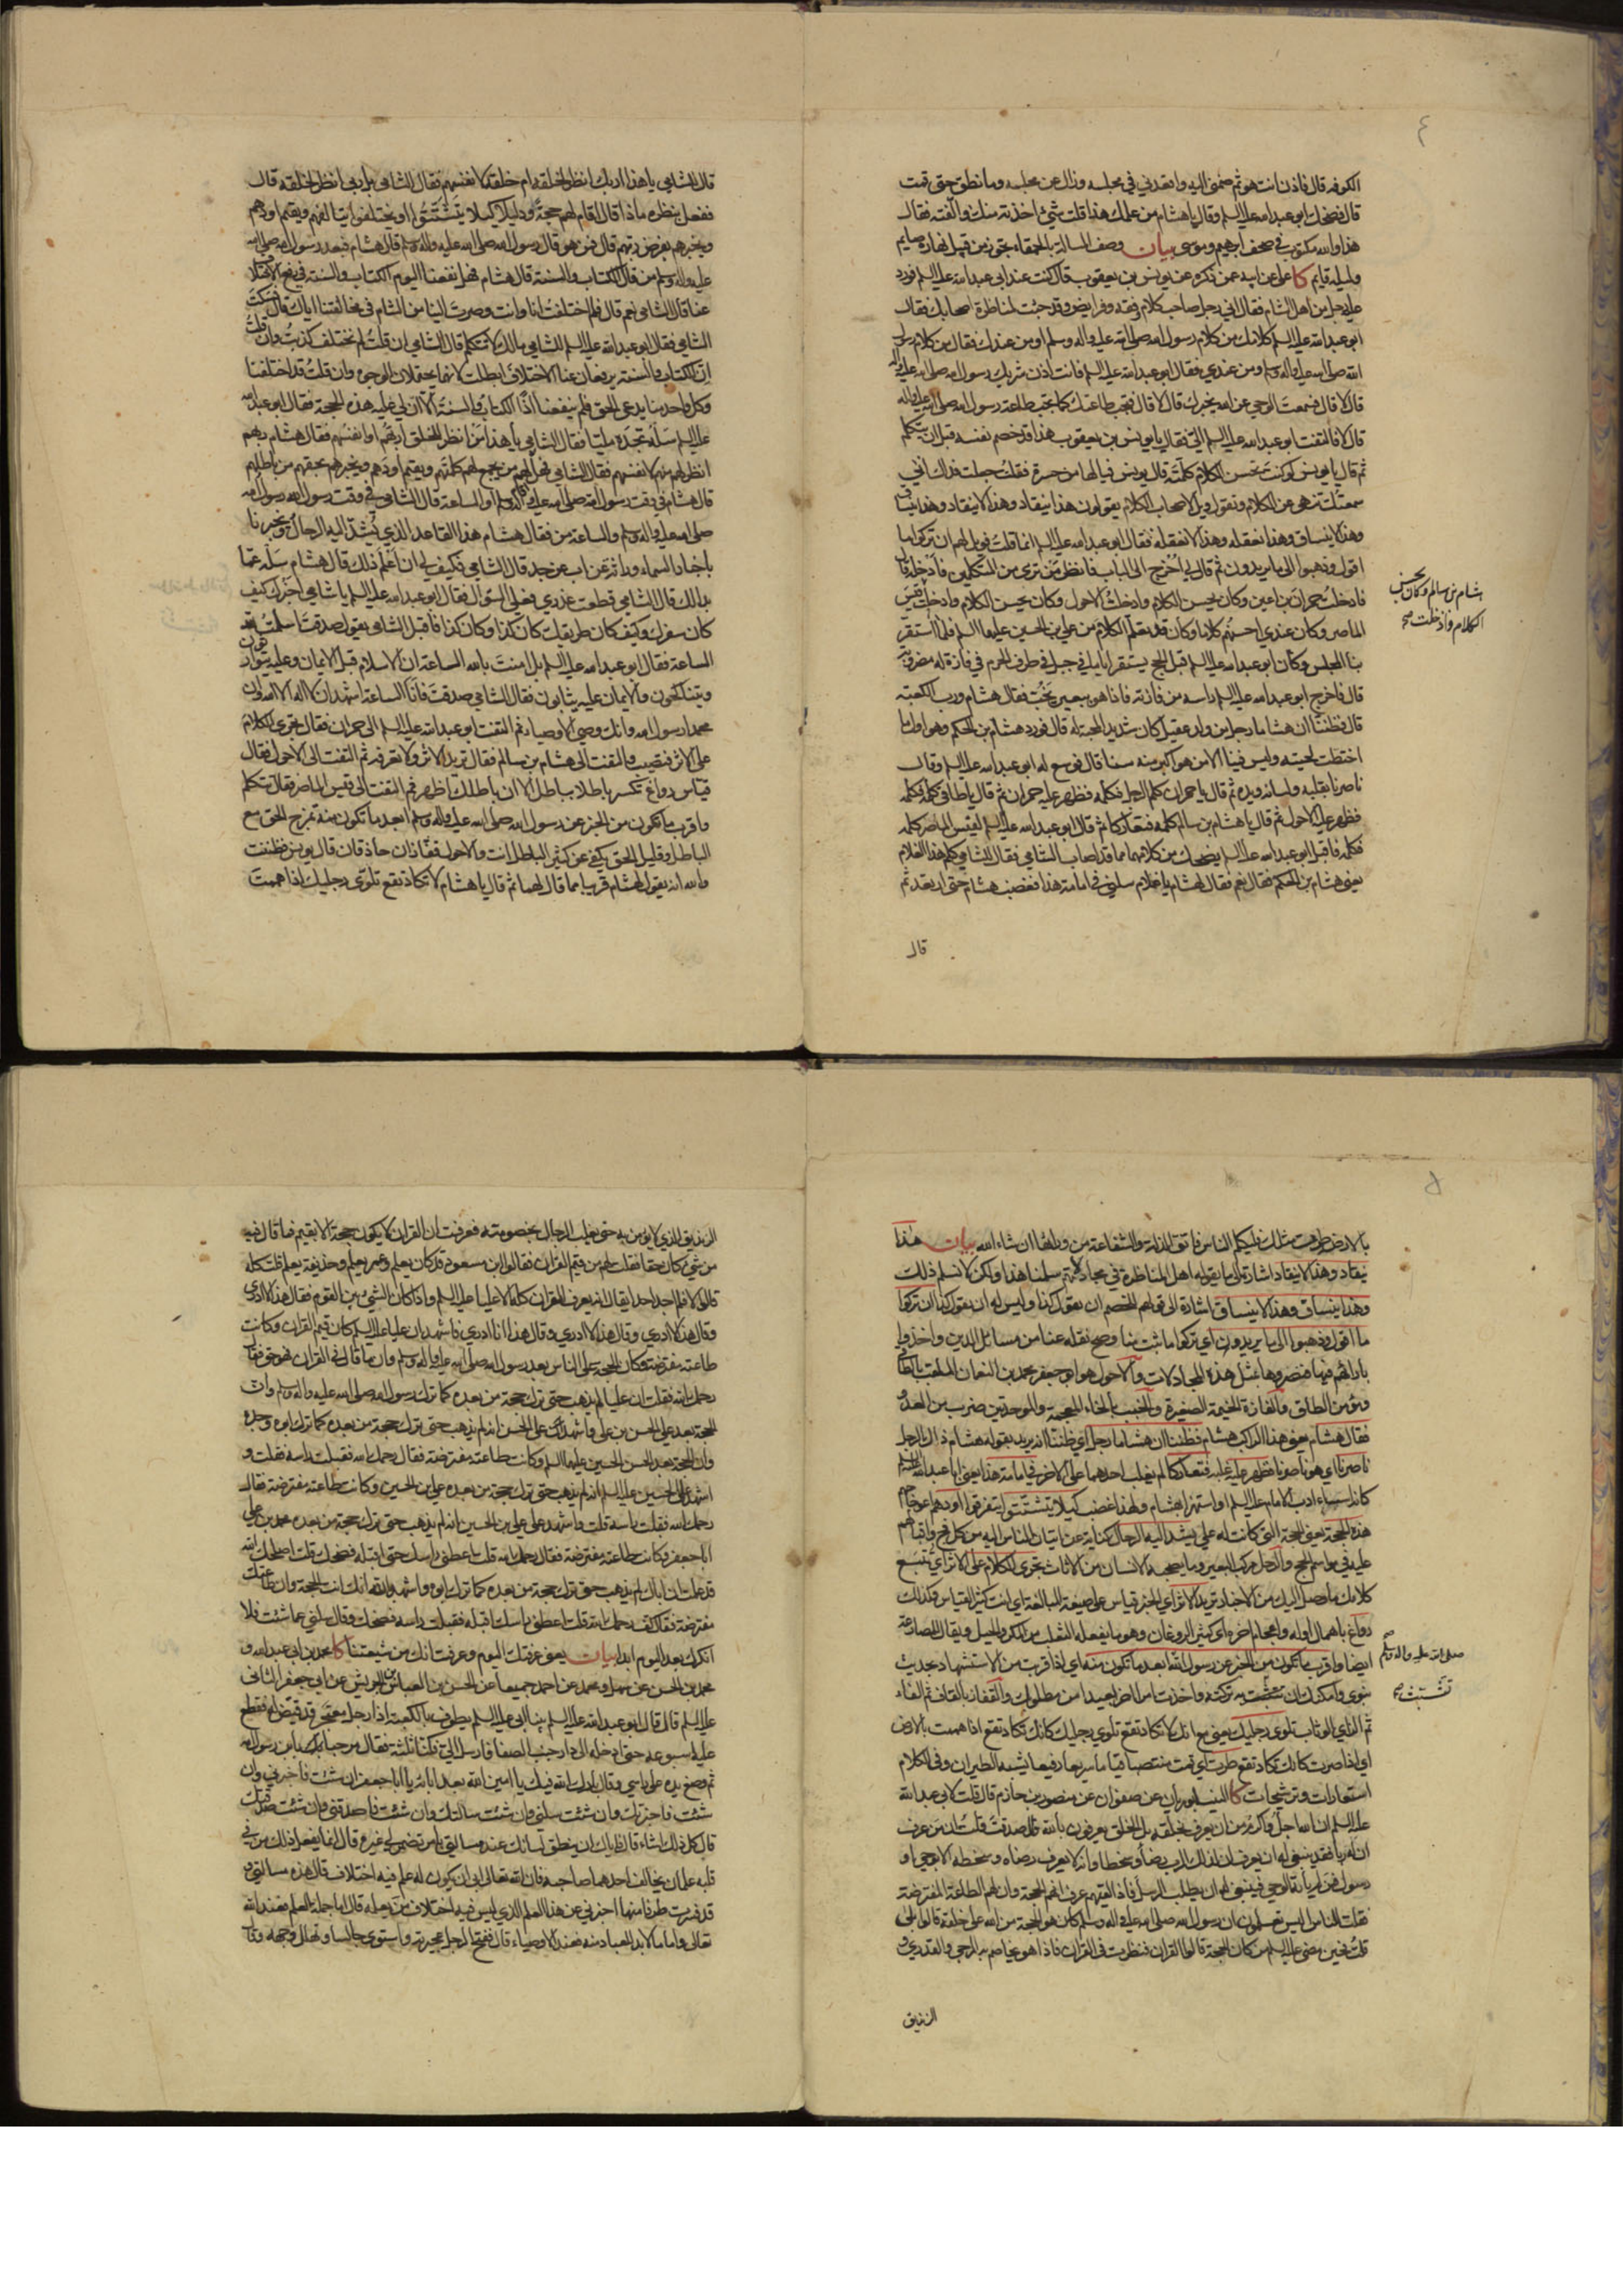 ٤
الكوفه قال فاذن انت هو ثم ضمنى اليه واقعدنى في مجلسه وزال عن مجلسه وما نطق حتى قمت
قال فضحك ابو عبد الله عليه السلم وقال يا هشام من علمك هذا قلت شئ اخذته منك والفته فقال
هذا والله مكتوب في صحف ابرهيم وموسى بيان وصف المسالة بالحمقاء تجوز من قبيل نهاره صايم
وليله قايم كا على عن ابيه عمن ذكره عن يونس بن يعقوب قال كنت عند ابى عبد الله عليه السلم فورد
عليه رجل من اهل الشام فقال انى رجل صاحب كلام وفقه وفرايض وقد جئت لمناظرة اصحابك فقال
ابو عبد الله عليه السلم كلامك من كلام رسول الله صلى الله عليه واله وسلم او من عندك فقال من كلام رسول
الله صلى الله عليه واله وسلم ومن عندي فقال ابو عبد الله عليه السلم فانت اذن شريك رسول الله صلى الله عليه واله
قال لا قال فسمعت الوحي عن الله يخبرك قال لا قال فتجب طاعتك كما تجب طاعة رسول الله صلى الله عليه واله
قال لا فالتفت ابو عبد الله عليه السلم الي فقال يا يونس بن يعقوب هذا قد خصم نفسه قبل ان يتكلم
ثم قال يا يونس لو كنت تحسن الكلام كلمته قال يونس فيالها من حسرة فقلت جعلت فداك انى
سمعتك تنهى عن الكلام وتقول ويل لاصحاب الكلام يقولون هذا ينقاد وهذا لا ينقاد وهذا ينساق
وهذا لا ينساق وهذا نعقله وهذا لا نعقله فقال ابو عبد الله عليه السلم انما قلت فويل لهم ان تركوا ما
اقول وذهبوا الى ما يريدون ثم قال لي اخرج الى الباب فانظر من ترى من المتكلمين فادخله قال
فادخلت حمران بن اعين وكان يحسن الكلام وادخلت الاحول وكان يحسن الكلام وادخلت قيس
هشام بن سالم وكان يحسن
الكلام وادخلت صح
الماصر وكان عندي احسنهم كلاما وكان قد تعلم الكلام من علي بن الحسين عليهما السلم فلما استقر
بنا المجلس وكان ابو عبد الله عليه السلم قبل الحج يستقر اياما في جبل في طرف الحرم في فازة له مضروبة
قال فاخرج ابو عبد الله عليه السلم راسه من فازته فاذا هو ببعير يخب فقال هشام ورب الكعبه
قال فظننا ان هشاما رجل من ولد عقيل كان شديد المحبة له قال فورد هشام بن الحكم وهو اول ما
اختطت لحيته وليس فينا الا من هو اكبر منه سنا قال فوسع له ابو عبد الله عليه السلم وقال
ناصرنا بقلبه ولسانه ويده ثم قال يا حمران كلم الرجل فكلمه فظهر عليه حمران ثم قال يا طاقى كلمه فكلمه
فظهر عليه الاحول ثم قال يا هشام بن سالم كلمه فتعاركا ثم قال ابو عبد الله عليه السلم لقيس الماصر كلمه
فكلمه فاقبل ابو عبد الله عليه السلم يضحك من كلامهما مما قد اصاب الشامي فقال للشامي كلم هذا الغلام
يعنى هشام بن الحكم فقال نعم فقال لهشام يا غلام سلنى في امامة هذا فغضب هشام حتى ارتعد ثم
قال
قال للشامي يا هذا اربك انظر لخلقه ام خلقه لانفسهم فقال الشامى بل ربي انظر لخلقه قال
ففعل بنظره لهم ماذا قال اقام لهم حجة ودليلا كيلا يتشتتوا او يختلفوا يتالفهم ويقيم اودهم
ويخبرهم بفرض ربهم قال فمن هو قال رسول الله صلى الله عليه واله وسلم قال هشام فبعد رسول الله صلى الله
عليه واله وسلم من قال الكتاب والسنة قال هشام فهل نفعنا اليوم الكتاب والسنة في رفع الاختلاف
عنا قال الشامي نعم قال فلم اختلفت انا وانت وصرت الينا من الشام في مخالفتنا اياك قال فسكت
الشامي فقال ابو عبد الله عليه السلم للشامي مالك لا تتكلم قال الشامي ان قلت لم نختلف كذبت وان قلت
ان الكتاب والسنة يرفعان عنا الاختلاف ابطلت لانهما يحتملان الوجوه وان قلت قد اختلفنا
وكل واحد منا يدعى الحق فلم ينفعنا اذا الكتاب والسنة الا ان لي عليه هذه الحجة فقال ابو عبد الله
عليه السلم سله تجده مليا فقال الشامي يا هذا من انظر للخلق اربهم او انفسهم فقال هشام ربهم
انظر لهم منهم لانفسهم فقال الشامي فهل اقام لهم من يجمع لهم كلمتهم ويقيم اودهم ويخبرهم بحقهم من باطلهم
قال هشام في وقت رسول الله صلى الله عليه واله وسلم او الساعة قال الشامى في وقت رسول الله رسول الله
صلى الله عليه واله وسلم والساعة من فقال هشام هذا القاعد الذي تشد اليه الرحال ويخبرنا
باخبار السماء وراثة عن اب عن جد قال الشامي فكيف لي ان اعلم ذلك قال هشام سله عما
بدا لك قال الشامي قطعت عذري فعلي السؤال فقال ابو عبد الله عليه السلم يا شامي اخبرك كيف
كان سفرك وكيف كان طريقك كان كذا وكان كذا فاقبل الشامي يقول صدقت اسلمت لله
الساعة فقال ابو عبد الله عليه السلم بل امنت بالله الساعة ان الاسلام قبل الايمان وعليه يتوارثون
ويتناكحون والايمان عليه يثابون فقال الشامي صدقت فانا الساعة اشهد ان لا اله الا الله وان
محمدا رسول الله وانك وصي الاوصياء ثم التفت ابو عبد الله عليه السلم الى حمران فقال تجري الكلام
على الاثر فتصيب والتفت الى هشام بن سالم فقال تريد الاثر ولا تعرفه ثم التفت الى الاحول فقال
قياس رواغ تكسر باطلا بباطل الا ان باطلك اظهر ثم التفت الى قيس الماصر فقال تتكلم
واقرب ما تكون من الخبر عن رسول الله صلى الله عليه واله وسلم ابعد ما تكون منه تمزج الحق مع
الباطل وقليل الحق يكفي عن كثير الباطل انت والاحول قفازان حاذقان قال يونس فظننت
والله انه يقول لهشام قريبا مما قال لهما ثم قال يا هشام لا تكاد تقع تلوي رجليك اذا هممت
٥
بالارض طرت مثلك فليكلم الناس فاتق الزلة والشفاعة من ورائها ان شاء الله بيان هذا
ينقاد وهذا لا ينقاد اشارة الى ما يقوله اهل المناظرة في مجادلاتهم سلمنا هذا ولكن لا نسلم ذلك
وهذا ينساق وهذا لا ينساق اشارة الى قولهم للخصم ان يقول كذا وليس له ان يقول كذا ان تركوا
ما اقول وذهبوا الى ما يريدون اي تركوا ما ثبت منا وصح نقله عنا من مسائل الدين واخذوا
بارائهم فيها فنصروها بمثل هذه المجادلات والاحول هو ابو جعفر محمد بن النعمان الملقب بالطاقي
ومؤمن الطاق والفازة الخيمة الصغيرة والخبب بالخاء المعجمة والموحدتين ضرب من العدو
فقال هشام يعنى هذا الراكب هشام فظننا ان هشاما رجل اي ظننا انه يريد بقوله هشام ذلك الرجل
ناصرنا اي هو ناصرنا فظهر عليه غلبه فتعاركا لم يغلب احدهما على الاخر في امامة هذا يعنى ابا عبد الله عليه السلم
كانه اساء ادب الامام عليه السلم او استهزا بهشام ولهذا غضب كيلا يتشتتوا يتفرقوا اودهم عوجهم
هذه الحجة يعنى الحجة التى كانت له علي يشد اليه الرحال كناية عن اتيان الناس اليه من كل فج واقبالهم
عليه في مواسم الحج والرحل مركب البعير وما يصحبه الانسان من الاثاث تجرى الكلام على الاثر اي تتبع
كلامك ما وصل اليك من الاخبار تريد الاثر اي الخبر قياس على صيغة المبالغة اي انت كثير القياس وكذلك
رواغ باهمال اوله واعجام اخره اي كثير الروغان وهو ما يفعله الثعلب من المكر والحيل ويقال للمصارعة
صلى الله عليه واله وسلم صح
ايضا واقرب ما تكون من الخبر عن رسول الله ابعد ما تكون منه اي اذا قربت من الاستشهاد بحديث
نبوي وامكنك ان تتشبث به تركته واخذت امرا اخر بعيدا من مطلوبك والقفاز بالقاف ثم الفاء
تتشبث صح
ثم الزاي الوثاب تلوي رجليك يعنى مع انك لا تكاد تقع تلوي رجليك كانك تكاد تقع اذا هممت بالارض
اي اذا صرت كانك تكاد تقع طرت اي قمت منتصبا قياما سريعا رفيعا يشبه الطيران وفي الكلام
استعارات وترشيحات كا النيسابوريان عن صفوان عن منصور بن حازم قال قلت لابى عبد الله
عليه السلم ان الله اجل واكرم من ان يعرف بخلقه بل الخلق يعرفون بالله قال صدقت قلت ان من عرف
ان له ربا فقد ينبغى له ان يعرف ان لذلك الرب رضا وسخطا وانه لا يعرف رضاه وسخطه الا بوحي او
رسول فمن لم ياته الوحي فينبغى له ان يطلب الرسل فاذا لقيهم عرف انهم الحجة وان لهم الطاعة المفترضة
فقلت للناس اليس تعلمون ان رسول الله صلى الله عليه واله وسلم كان هو الحجة من الله على خلقه قالوا بلى
قلت فحين مضى عليه السلم من كان الحجة قالوا القران فنظرت في القران فاذا هو يخاصم به المرجي والقدري و
الزنديق
الزنديق الذي لا يؤمن به حتى يغلب الرجال بخصومته فعرفت ان القران لا يكون حجة الا بقيم فما قال فيه
من شئ كان حقا فقلت لهم من قيم القران فقالوا ابن مسعود قد كان يعلم وعمر يعلم وحذيفة يعلم قلت كله
قالوا لا فلم اجد احدا يقال انه يعرف القران كله الا عليا عليه السلم واذا كان الشئ بين القوم فقال هذا لا ادري
وقال هذا لا ادري وقال هذا لا ادري وقال هذا انا ادري فاشهد ان عليا عليه السلم كان قيم القران وكانت
طاعته مفترضة وكان الحجة على الناس بعد رسول الله صلى الله عليه واله وسلم وان ما قال في القران فهو حق فقال
رحمك الله فقلت ان عليا لم يذهب حتى ترك حجة من بعده كما ترك رسول الله صلى الله عليه واله وسلم وان
الحجة بعد علي الحسن بن علي واشهد على الحسن انه لم يذهب حتى ترك حجة من بعده كما ترك ابوه وجده
وان الحجة بعد الحسن الحسين عليهما السلم وكانت طاعته مفترضة فقال رحمك الله فقبلت راسه فقلت و
اشهد على الحسين عليه السلم انه لم يذهب حتى ترك حجة من بعده علي بن الحسين وكانت طاعته مفترضة فقال
رحمك الله فقبلت راسه قلت واشهد على علي بن الحسين انه لم يذهب حتى ترك حجة من بعده محمد بن علي
ابا جعفر وكانت طاعته مفترضة فقال رحمك الله قلت اعطنى راسك حتى اقبله فضحك قلت اصلحك الله
قد علمت ان اباك لم يذهب حتى ترك حجة من بعده كما ترك ابوه واشهد بالله انك انت الحجة وان طاعتك
مفترضة فقال كف رحمك الله قلت اعطنى راسك اقبله فقبلت راسه فضحك وقال سلنى عما شئت فلا
انكرك بعد اليوم ابدا بيان يعنى عرفتك اليوم وعرفت انك من شيعتنا كا محمد بن ابى عبد الله و
محمد بن الحسن عن سهل ومحمد عن احمد جميعا عن الحسن بن العباس بن الحريش عن ابى جعفر الثانى
عليه السلم قال قال ابو عبد الله عليه السلم بينا ابى عليه السلم يطوف بالكعبة اذا رجل معتجر قد قيض له فقطع
عليه اسبوعه حتى ادخله الى دار جنب الصفا فارسل الى فكنا ثلثة فقال مرحبا بك يا بن رسول الله
ثم وضع يده على راسي وقال بارك الله فيك يا امين الله بعد ابائه يا ابا جعفر ان شئت فاخبرني وان
شئت فاخبرتك وان شئت سلنى وان شئت سالتك وان شئت فاصدقنى وان شئت صدقتك
قال كل ذلك اشاء قال فاياك ان ينطق لسانك عند مسالتي بامر تضمر لي غيره قال انما يفعل ذلك من في
قلبه علمان يخالف احدهما صاحبه فان الله تعالى ابى ان يكون له علم فيه اختلاف قال هذه مسالتى و
قد فسرت طرفا منها اخبرني عن هذا العلم الذي ليس فيه اختلاف من يعلمه قال اما جملة العلم فعند الله
تعالى واما ما لا بد للعباد منه فعند الاوصياء قال ففتح الرجل عجيرته واستوى جالسا وتهلل وجهه وقال